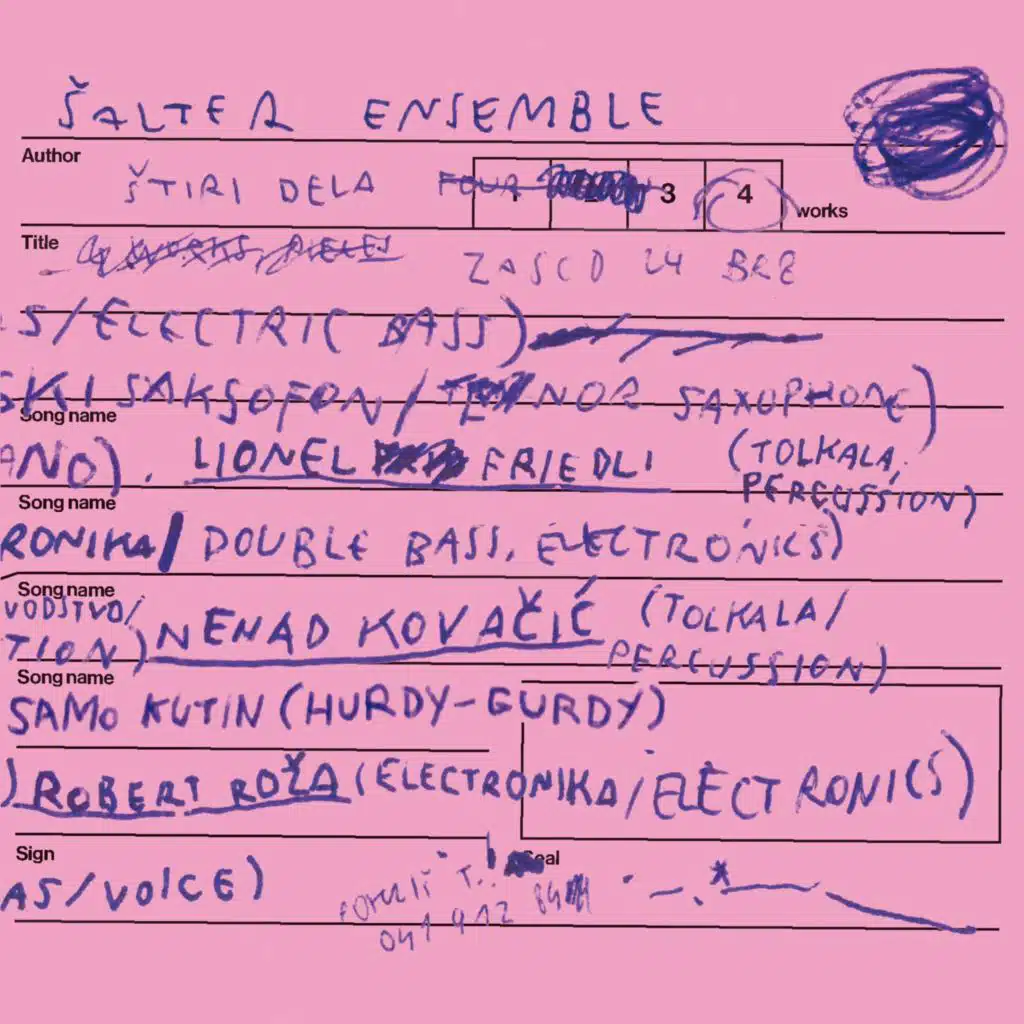 ŠALTER ENSEMBLE
Author
ŠTIRI DELA FOUR 3 4 works
Title
ZASCD 24 BRE
S/ELECTRIC BASS)
SKI SAKSOFON/TENOR SAXOPHONE)
Song name
ANO). LIONEL FRIEDLI (TOLKALA,
PERCUSSION)
Song name
RONIKA/ DOUBLE BASS, ELECTRONICS)
Song name
VODSTVO/
TION) NENAD KOVAČIĆ (TOLKALA/
PERCUSSION)
Song name
SAMO KUTIN (HURDY-GURDY)
) ROBERT ROŽA (ELECTRONIKA/ELECTRONICS)
Sign
Seal
AS/VOICE)
041 912